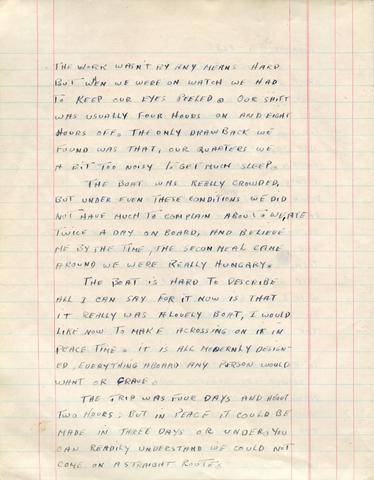 THE WORK WASN'T BY ANY MEANS HARD
BUT WEN WE WERE ON WATCH WE HAD
TO KEEP OUR EYES PEELED. OUR SHIFT
WAS USUALLY FOUR HOURS ON AND EIGHT
HOURS OFF. THE ONLY DRAWBACK WE
FOUND WAS THAT, OUR QUARTERS WE
A BIT TOO NOISY TO GET MUCH SLEEP.
THE BOAT WAS REALLY CROWDED,
BUT UNDER EVEN THESE CONDITIONS WE DID
NOT HAVE MUCH TO COMPLAIN ABOUT. WE ATE
TWICE A DAY ON BOARD, AND BELIEVE
ME BY THE TIME, THE SECON MEAL CAME
AROUND WE WERE REALLY HUNGARY.
THE BOAT IS HARD TO DESCRIBE
ALL I CAN SAY FOR IT NOW IS THAT
IT REALLY WAS A LOVELY BOAT, I WOULD
LIKE NOW TO MAKE ACROSSING ON IT IN
PEACE TIME. IT IS ALL MODERNLY DESIGN-
ED, EVERYTHING ABOARD ANY PERSON WOULD
WANT OR CRAVE.
THE TRIP WAS FOUR DAYS AND ABOUT
TWO HOURS; BUT IN PEACE IT COULD BE
MADE IN THREE DAYS OR UNDER, YOU
CAN READILY UNDERSTAND WE COULD NOT
COME ON A STRAIGHT ROUTE.